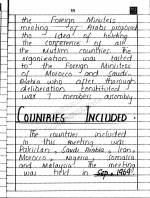 the Foreign Ministers
meeting of Arabs proposed
the idea of holding
the conference of all
the Muslim countries. The
organization was tasked
to the Foreign Ministers
of Morocco and Saudi
Arabia who after through
deliberation constituted
was 7 members assembly
COUNTRIES INCLUDED.
The countries included
in this meeting was
Pakistan, Saudi Arabia, Iran,
Morocco, Nigeria, Somaria
and Malaysia. The meeting
was held in Sep, 1969.